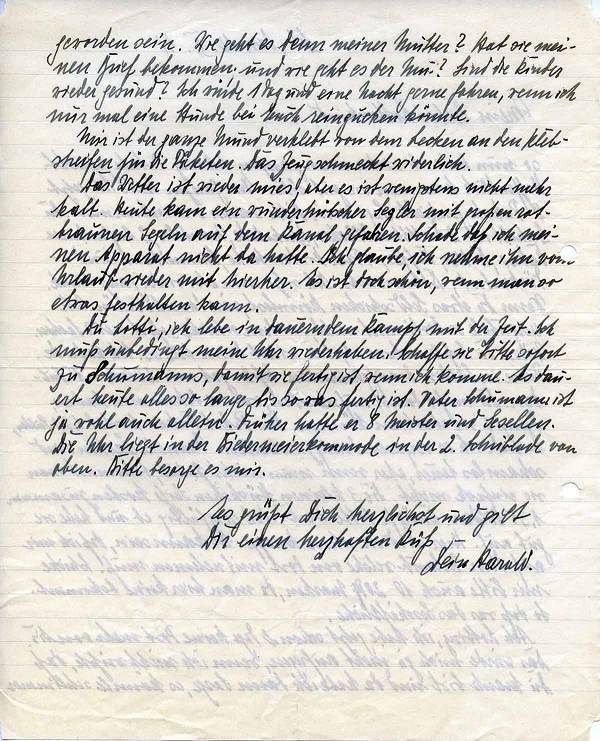 geworden sein. Wie geht es denn meiner Mutter? Hat sie mei-
nen Brief bekommen und wie geht es der Mu? Sind die Kinder
wieder gesund? Ich würde 1 Tag und eine Nacht gerne fahren, wenn ich
nur mal eine Stunde bei Euch reingucken könnte.
Mir ist der ganze Mund verklebt von dem Lecken an den Kleb-
streifen für die Paketen. Das Zeug schmeckt widerlich.
Das Wetter ist wieder mies, aber es ist wenigstens nicht mehr
kalt. Heute kam ein wunderhübscher Segler mit großen rot-
braunen Segeln auf dem Kanal gefahren. Schade daß ich mei-
nen Apparat nicht da hatte. Ich glaube, ich nehme ihn vom
Urlaub wieder mit hierher. Es ist doch schön, wenn man so
etwas festhalten kann.
Du Lotte, ich lebe in dauerndem Kampf mit der Zeit. Ich
muß unbedingt meine Uhr wiederhaben. Schaffe sie bitte sofort
zu Schumanns, damit sie fertig ist, wenn ich komme. Es dau-
ert heute alles so lange bis so was fertig ist. Vater Schumann ist
ja wohl auch allein. Früher hatte er 8 Meister und Gesellen.
Die Uhr liegt in der Biedermeierkommode in der 2. Schublade von
oben. Bitte besorge es mir.
Es grüßt Dich herzlichst und gibt
Dir einen herzhaften Kuß
Dein Harald.